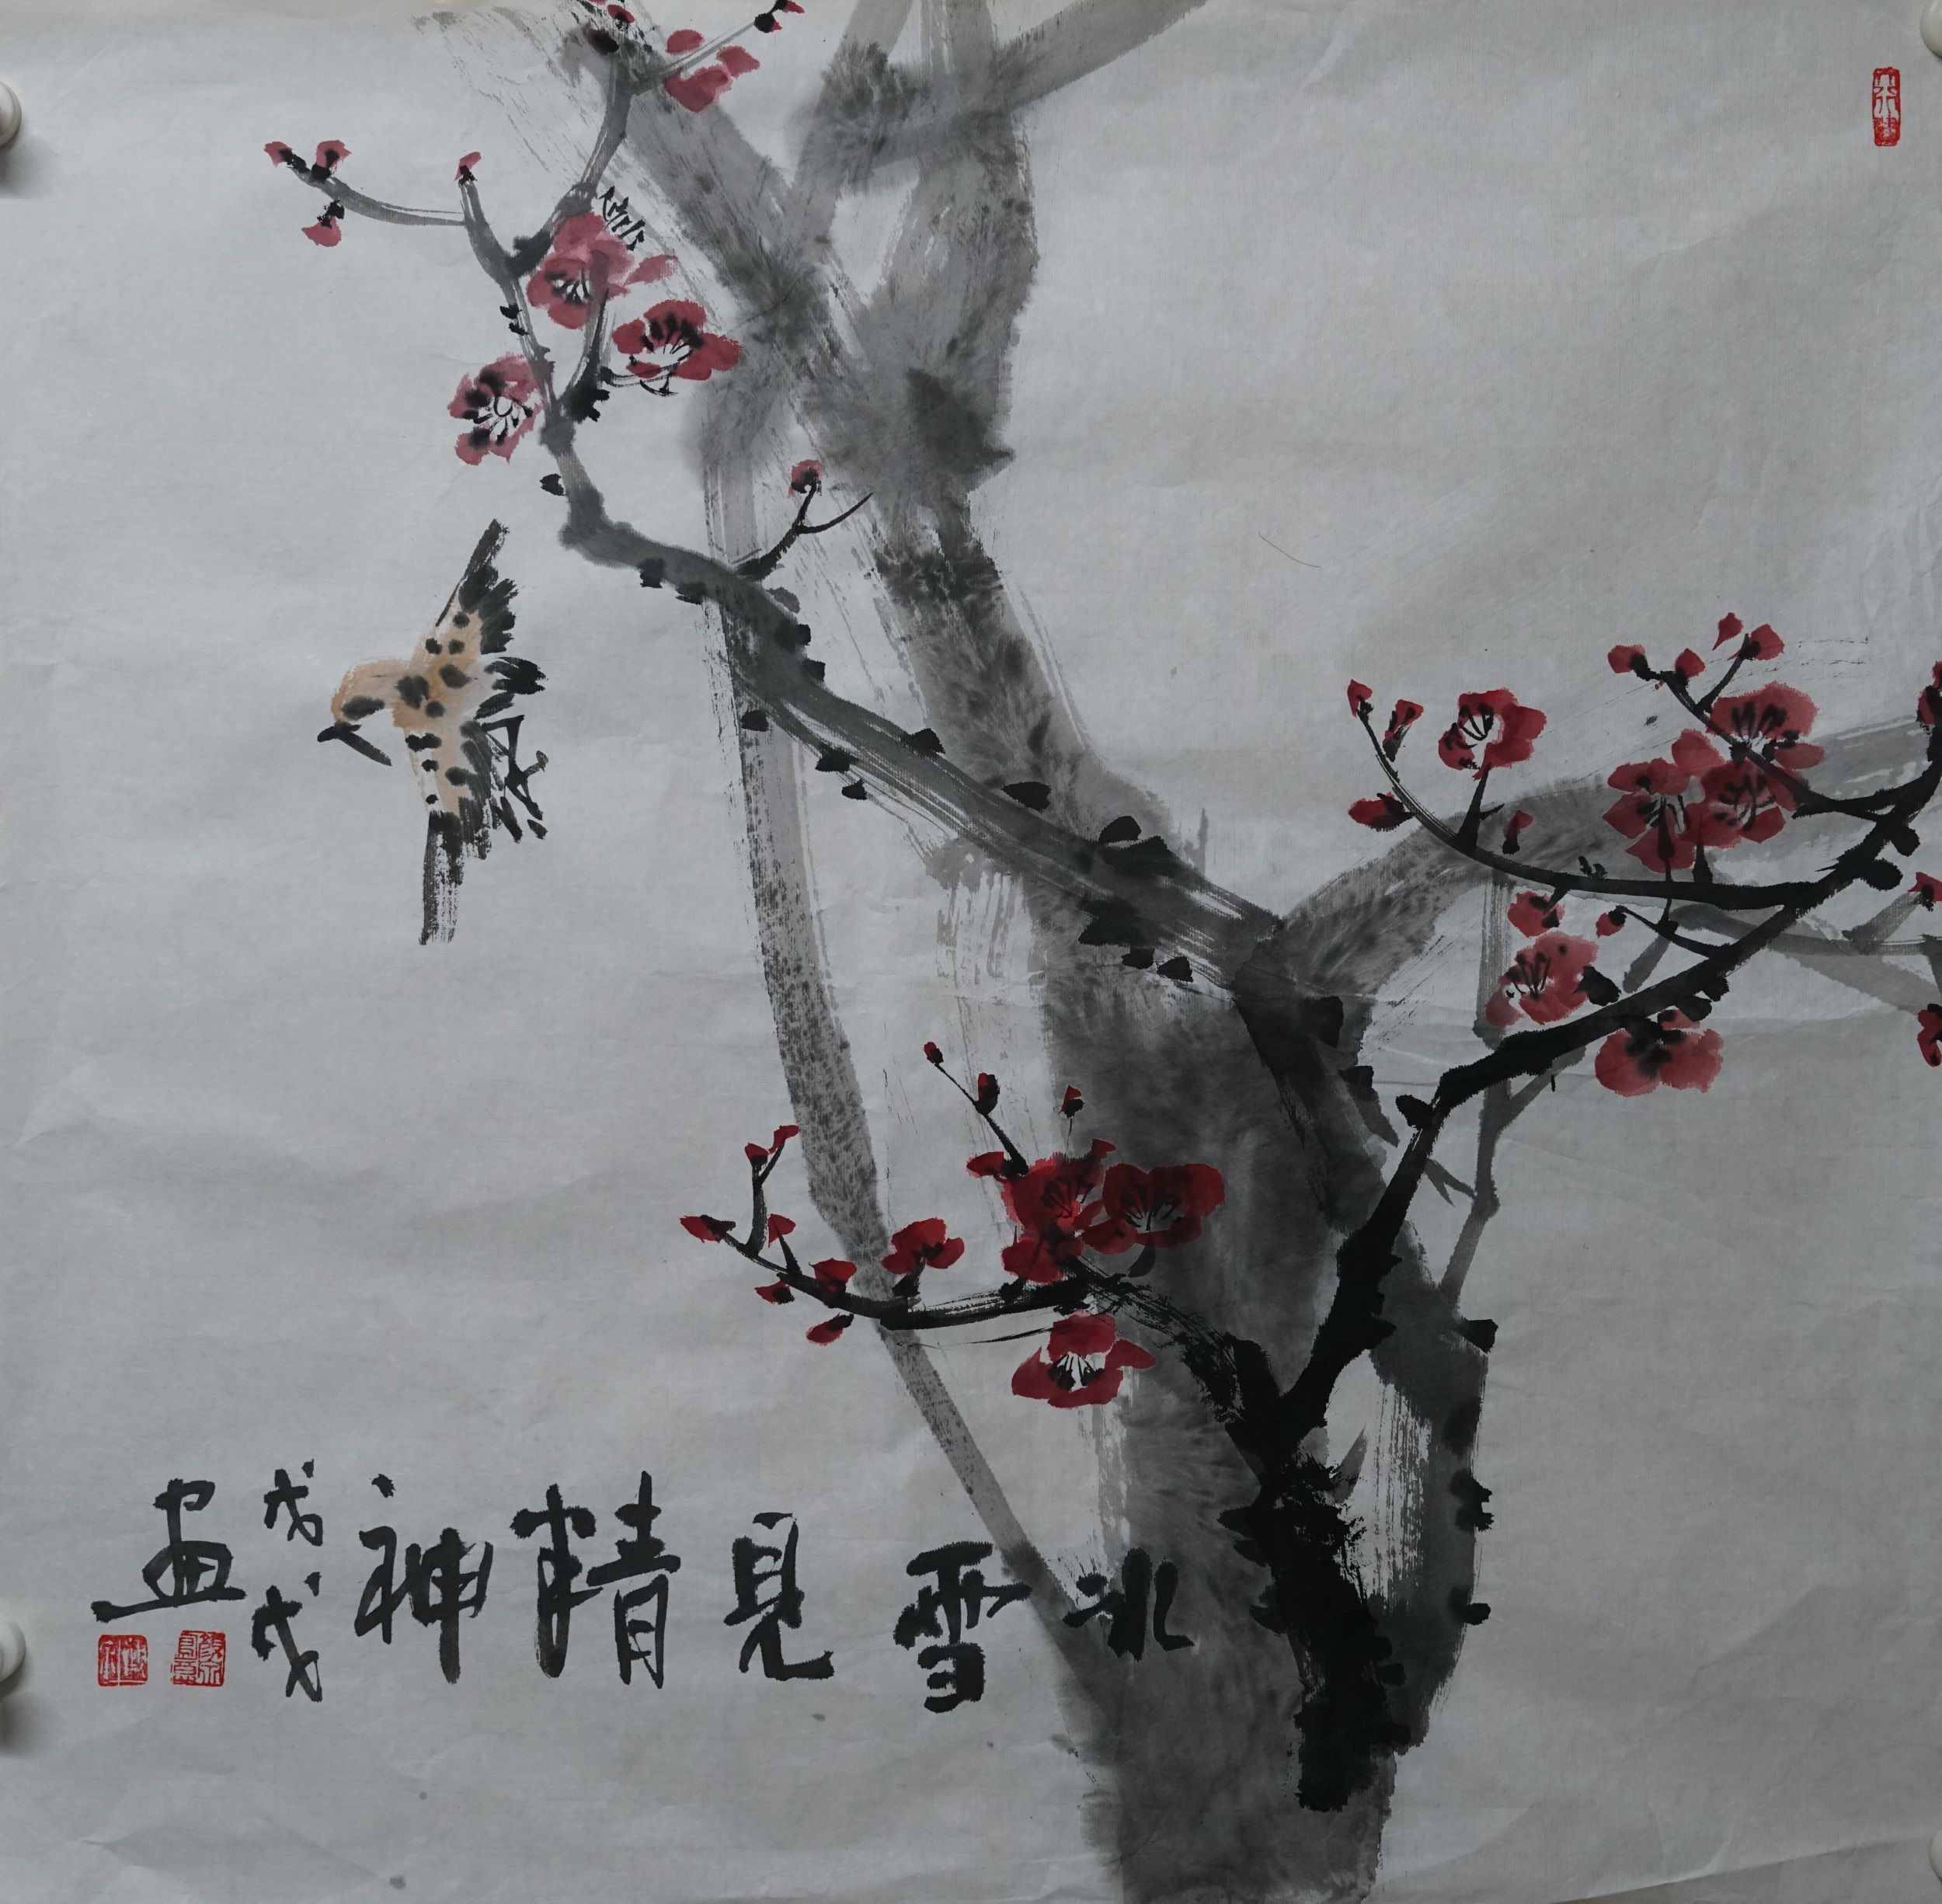 冰雪見精神
戊戌
画